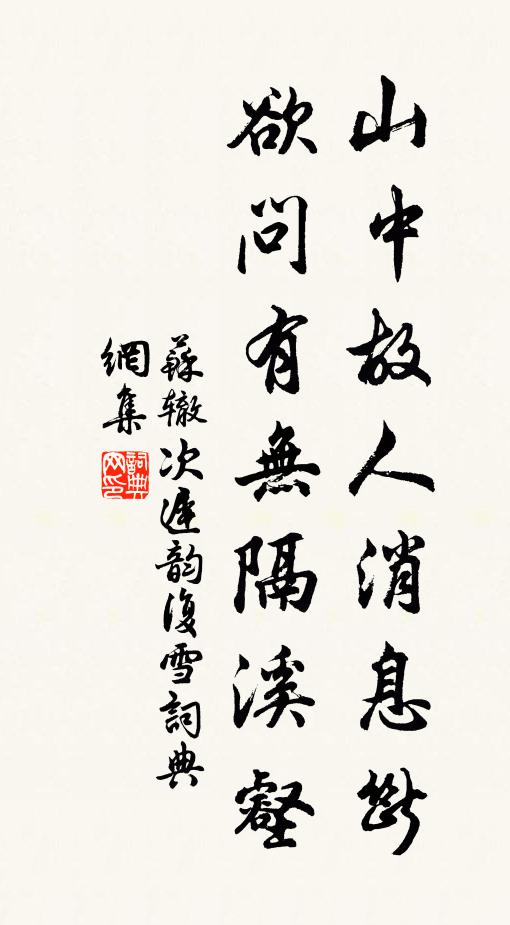 山中故人消息斷
欲問有無隔溪壑
蘇辙次遲韵復雪詞典
網集
詞典网印